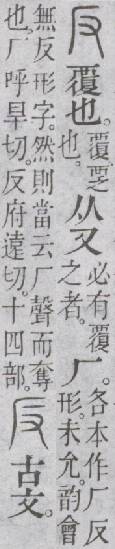 反覆也。覆覂也。从又必有覆之者。厂。各本作厂反形。未允。韵會
無反形字。然則當云厂聲而奪也。厂呼旱切。反府遠切。十四部。𠬡古文。